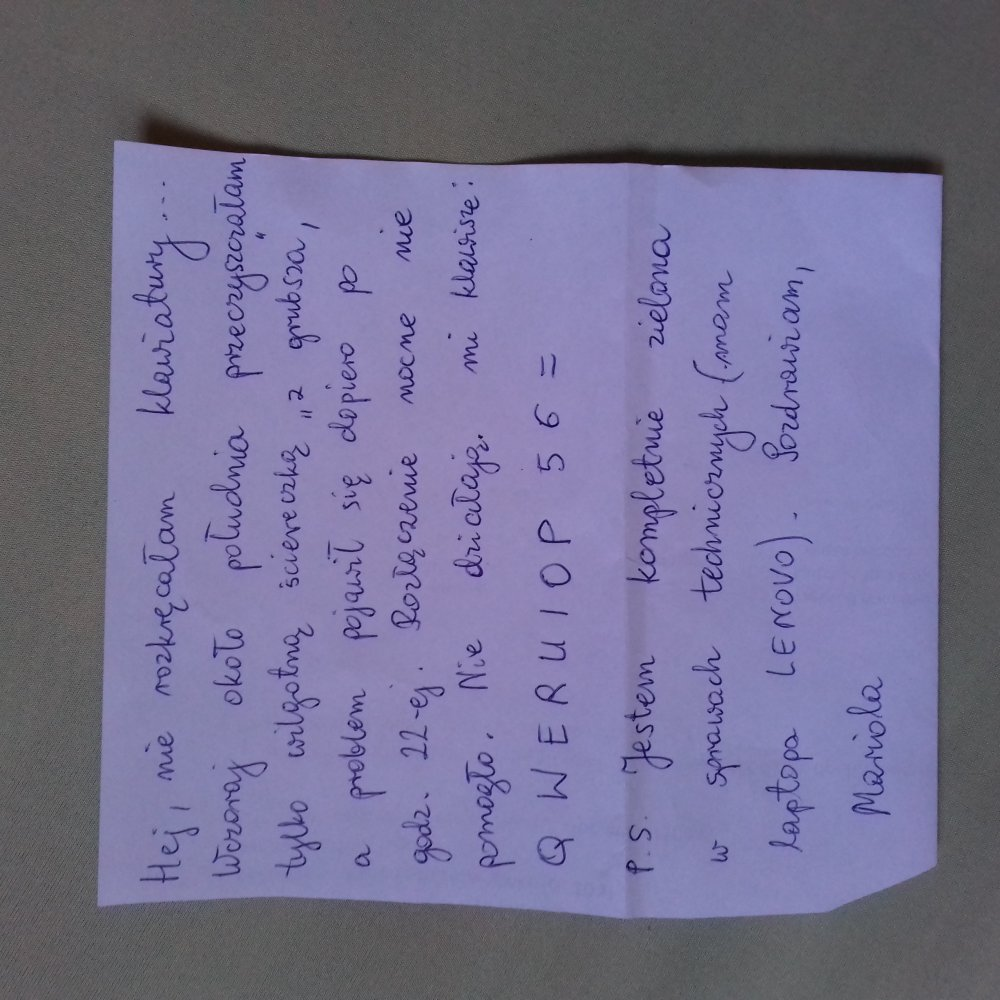 Hej, nie rozkręcałam klawiatury...
Wczoraj około południa przeczyszczałam
tylko wilgotną ściereczką „z grubsza",
a problem pojawił się dopiero po
godz. 22-ej. Rozłączenie mocne nie
pomogło. Nie działają mi klawisze:
Q W E R U I O P 5 6 =
P.S. Jestem kompletnie zielona
w sprawach technicznych (mam
laptopa LENOVO). Pozdrawiam,
Mariola